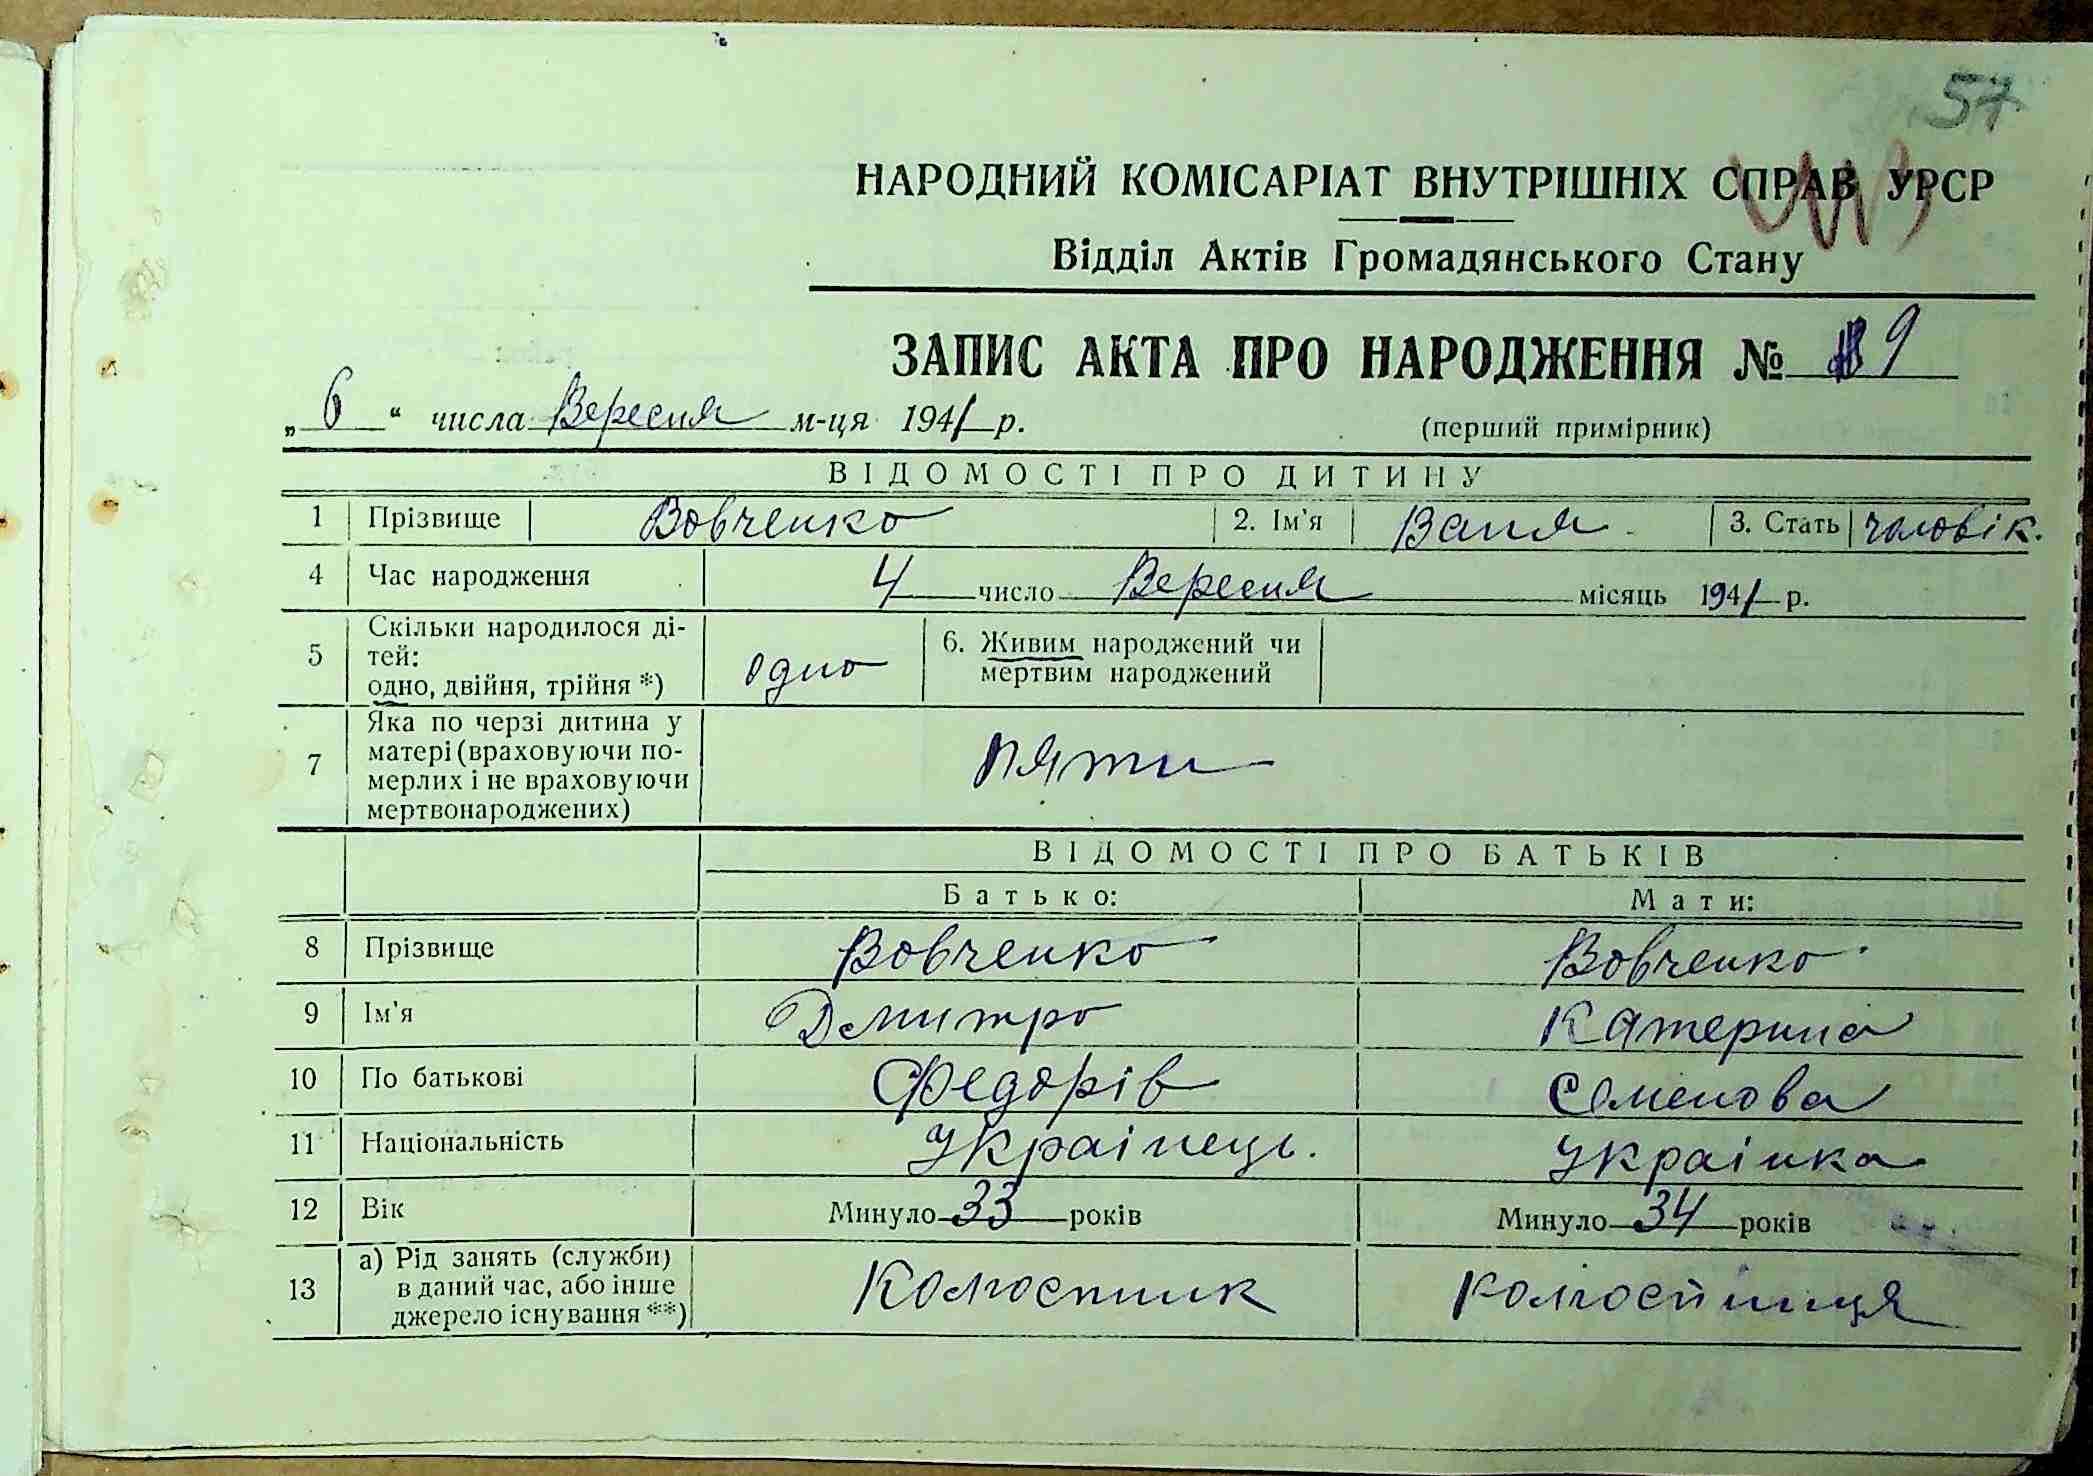 57
НАРОДНИЙ КОМІСАРІАТ ВНУТРІШНІХ СПРАВ УРСР
Відділ Актів Громадянського Стану
ЗАПИС АКТА ПРО НАРОДЖЕННЯ № 9
„6“ числа Вересня м-ця 1941 р.
(перший примірник)
ВІДОМОСТІ ПРО ДИТИНУ
1 Прізвище Вовченко 2. Ім'я Ваня 3. Стать чоловік.
4 Час народження 4 число Вересня місяць 1941 р.
5 Скільки народилося ді-
тей:
одно, двійня, трійня *) одно
6. Живим народжений чи
мертвим народжений
7 Яка по черзі дитина у
матері (враховуючи по-
мерлих і не враховуючи
мертвонароджених) пяти
ВІДОМОСТІ ПРО БАТЬКІВ
Батько: Мати:
8 Прізвище Вовченко Вовченко
9 Ім'я Дмитро Катерина
10 По батькові Федорів Семенова
11 Національність Українець. Українка
12 Вік Минуло 33 років Минуло 34 років
13 а) Рід занять (служби)
в даний час, або інше
джерело існування **) Колгоспник колгоспниця